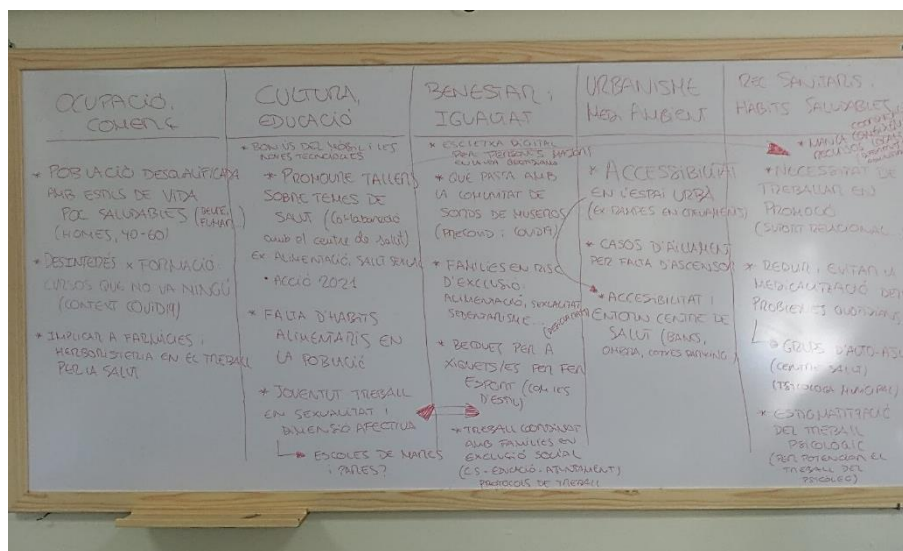 OCUPACIÓ,
COMERÇ
* POBLACIÓ DESQUALIFICADA
AMB ESTILS DE VIDA
POC SALUDABLES (BEURE,
FUMAR...)
(HOMES, 40-60)
* DESINTERÉS X FORMACIÓ
CURSOS QUE NO VA NINGÚ
(CONTEXT COVID19)
* IMPLICAR A FARMÀCIES I
HERBORISTERIA EN EL TREBALL
PER LA SALUT
CULTURA,
EDUCACIÓ
* BON US DEL MÒBIL I LES
NOVES TECNOLOGIES
* PROMOURE TALLERS
SOBRE TEMES DE
SALUT (Col·laboració
amb el centre de salut)
EX ALIMENTACIÓ, SALUT SEXUAL
• ACCIÓ 2021
* FALTA D'HÀBITS
ALIMENTARIS EN
LA POBLACIÓ
* JOVENTUT TREBALL
EN SEXUALITAT I
DIMENSIÓ AFECTIVA
ESCOLES DE MARES
I PARES?
BENESTAR I
IGUALTAT
* ESCLETXA DIGITAL
PER PERSONES MAJORS
EN LA VIDA
* QUE PASSA AMB
LA COMUNITAT DE
SORDS DE MUSEROS
(PRECOVID I COVID19)
* FAMÍLIES EN RISC
D'EXCLUSIÓ:
ALIMENTACIÓ, SEXUALITAT,
SEDENTARISME...
* BEQUES PER A
XIQUETS/ES PER FER
ESPORT (COM LES
D'ESTIU)
* TREBALL COORDINAT
AMB FAMÍLIES EN
EXCLUSIÓ SOCIAL
(CS - EDUCACIÓ - AJUNTAMENT)
PROTOCOLS DE TREBALL
URBANISME
MEDI AMBIENT
* ACCESSIBILITAT
EN L'ESPAI URBÀ
(EX RAMPES EN
* CASOS D'AÏLLAMENT
PER FALTA D'ASCENSOR
* ACCESIBILITAT I
ENTORN CENTRE DE
SALUT (BANS,
OMBRA, COTXES PARKING)
REC SANITARIS I
HÀBITS SALUDABLES
* MANCA
RECURSOS
* NECESSITAT DE
TREBALLAR EN
PROMOCIÓ
(SUPORT RELACIONAL
* REDUIR I EVITAR LA
MEDICALITZACIÓ DELS
PROBLEMES QUOTIDIANS
GRUPS D'AUTO-AJUDA
(CENTRE SALUT)
(PSICOLOGA MUNICIPAL)
* ESTIGMATITZACIÓ
DEL TREBALL
PSICOLOGIC
(PER POTENCIAR EL
TREBALL DEL
PSICÒLEG)